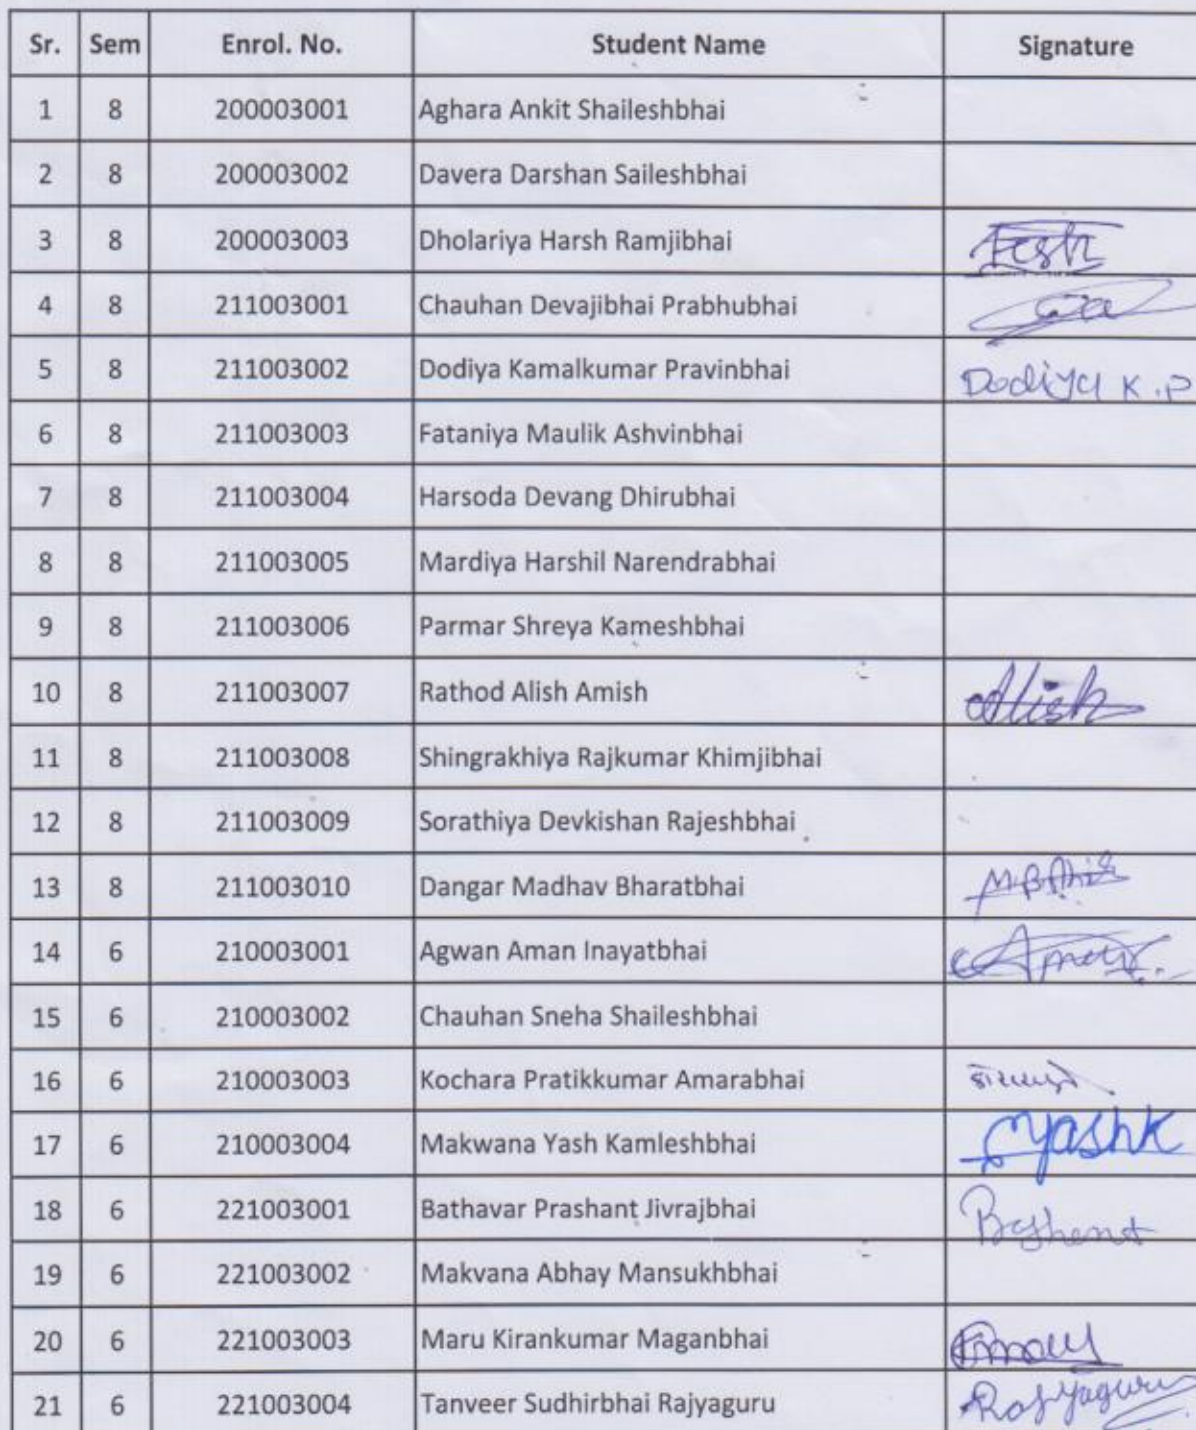 Sr. Sem Enrol. No. Student Name Signature
1 8 200003001 Aghara Ankit Shaileshbhai
2 8 200003002 Davera Darshan Saileshbhai
3 8 200003003 Dholariya Harsh Ramjibhai
4 8 211003001 Chauhan Devajibhai Prabhubhai
5 8 211003002 Dodiya Kamalkumar Pravinbhai Dodiya K.P
6 8 211003003 Fataniya Maulik Ashvinbhai
7 8 211003004 Harsoda Devang Dhirubhai
8 8 211003005 Mardiya Harshil Narendrabhai
9 8 211003006 Parmar Shreya Kameshbhai
10 8 211003007 Rathod Alish Amish Alish
11 8 211003008 Shingrakhiya Rajkumar Khimjibhai
12 8 211003009 Sorathiya Devkishan Rajeshbhai
13 8 211003010 Dangar Madhav Bharatbhai
14 6 210003001 Agwan Aman Inayatbhai Aman
15 6 210003002 Chauhan Sneha Shaileshbhai
16 6 210003003 Kochara Pratikkumar Amarabhai
17 6 210003004 Makwana Yash Kamleshbhai YashK
18 6 221003001 Bathavar Prashant Jivrajbhai
19 6 221003002 Makvana Abhay Mansukhbhai
20 6 221003003 Maru Kirankumar Maganbhai
21 6 221003004 Tanveer Sudhirbhai Rajyaguru Rajyaguru